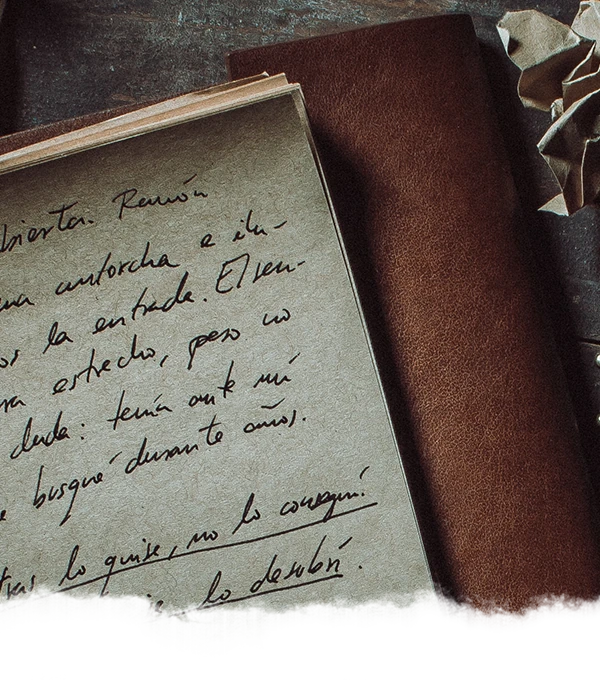 bierta. Ramón
na antorcha e ilu-
os la entrada. El sen-
ra estrecho, pero no
duda: tenía ante mí
e busqué durante años.
tras lo quise, no lo conseguí
lo descubrí.